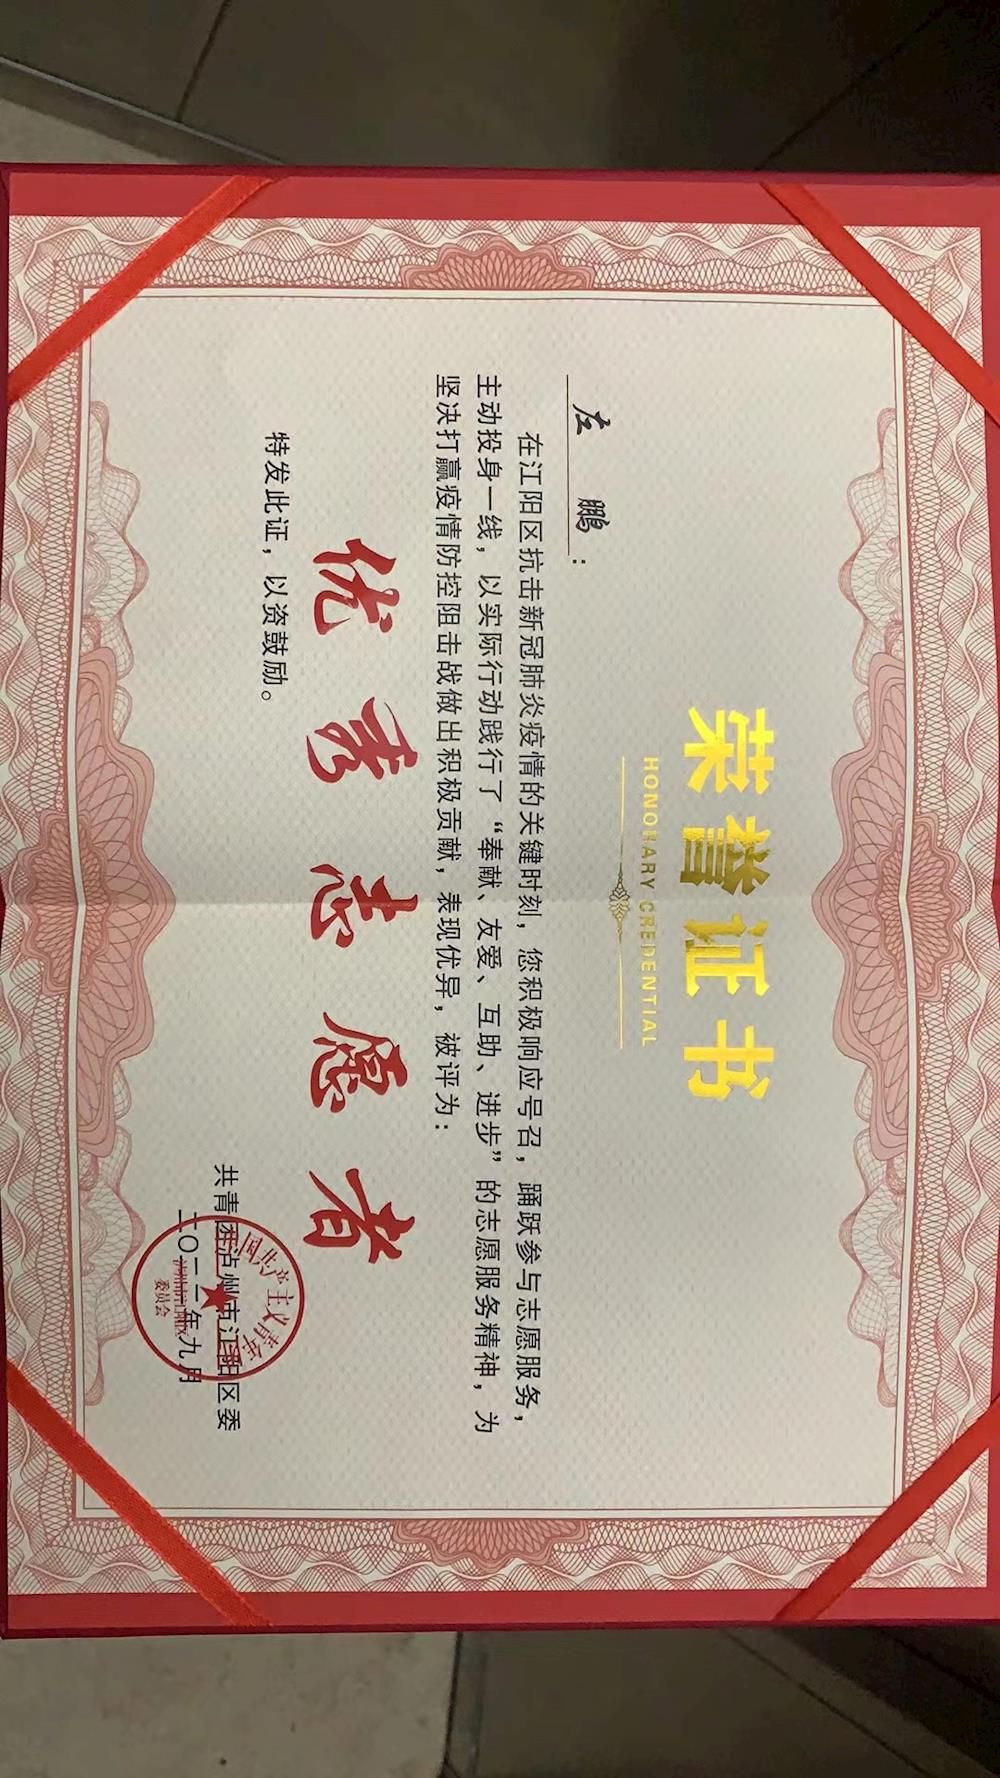 荣誉证书
HONORARY CREDENTIAL
左鹏：
在江阳区抗击新冠肺炎疫情的关键时刻，您积极响应号召，踊跃参与志愿服务，
主动投身一线，以实际行动践行了“奉献、友爱、互助、进步”的志愿服务精神，为
坚决打赢疫情防控阻击战做出积极贡献，表现优异，被评为：
优秀志愿者
特发此证，以资鼓励。
共青团泸州市江阳区委
二〇二二年九月
国共产主义青年
泸州市江阳区
委员会